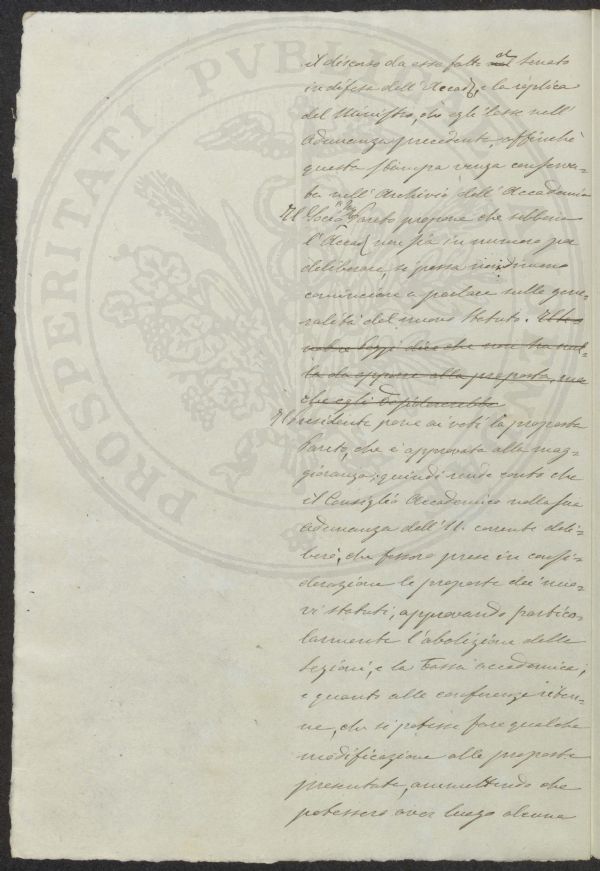 il discorso da esso fatto al Senato
in difesa dell'Accad. e la replica
del Ministro, che egli lesse nell'
adunanza precedente, affinchè
questa stampa venga conserva-
ta nell'Archivio dell'Accademia
Il Socio Ing. Pareto propone che sebbene
l'Accad. non sia in numero per
deliberare, si possa nondimeno
cominciare a parlare sulle gene-
ralità del nuovo Statuto.
che non ha nul-
la da opporre alla proposta, ma
che egli desidererebbe
Il Presidente pone ai voti la proposta
Pareto, che è approvata alla mag-
gioranza; quindi rende conto che
il Consiglio Accademico nella sua
adunanza dell'11. corrente deli-
berò, che fossero prese in consi-
derazione le proposte dei nuo-
vi statuti, approvando partico-
larmente l'abolizione delle
Sezioni, e la tassa accademica;
e quanto alle conferenze riten-
ne, che si potesse fare qualche
modificazione alle proposte
presentate, ammettendo che
potessero aver luogo alcune
PROSPERITATI PVBLICAE